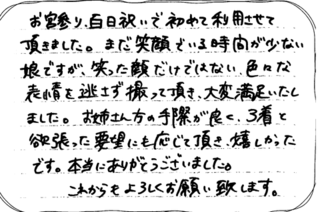 お宮参り、百日祝いで初めて利用させて
頂きました。まだ笑顔でいる時間が少ない
娘ですが、笑った顔だけではない、色々な
表情を逃さず撮って頂き、大変満足いたし
ました。お姉さん方の手際が良く、3着と
欲張った要望にも応じて頂き、嬉しかった
です。本当にありがとうございました。
これからもよろしくお願い致します。